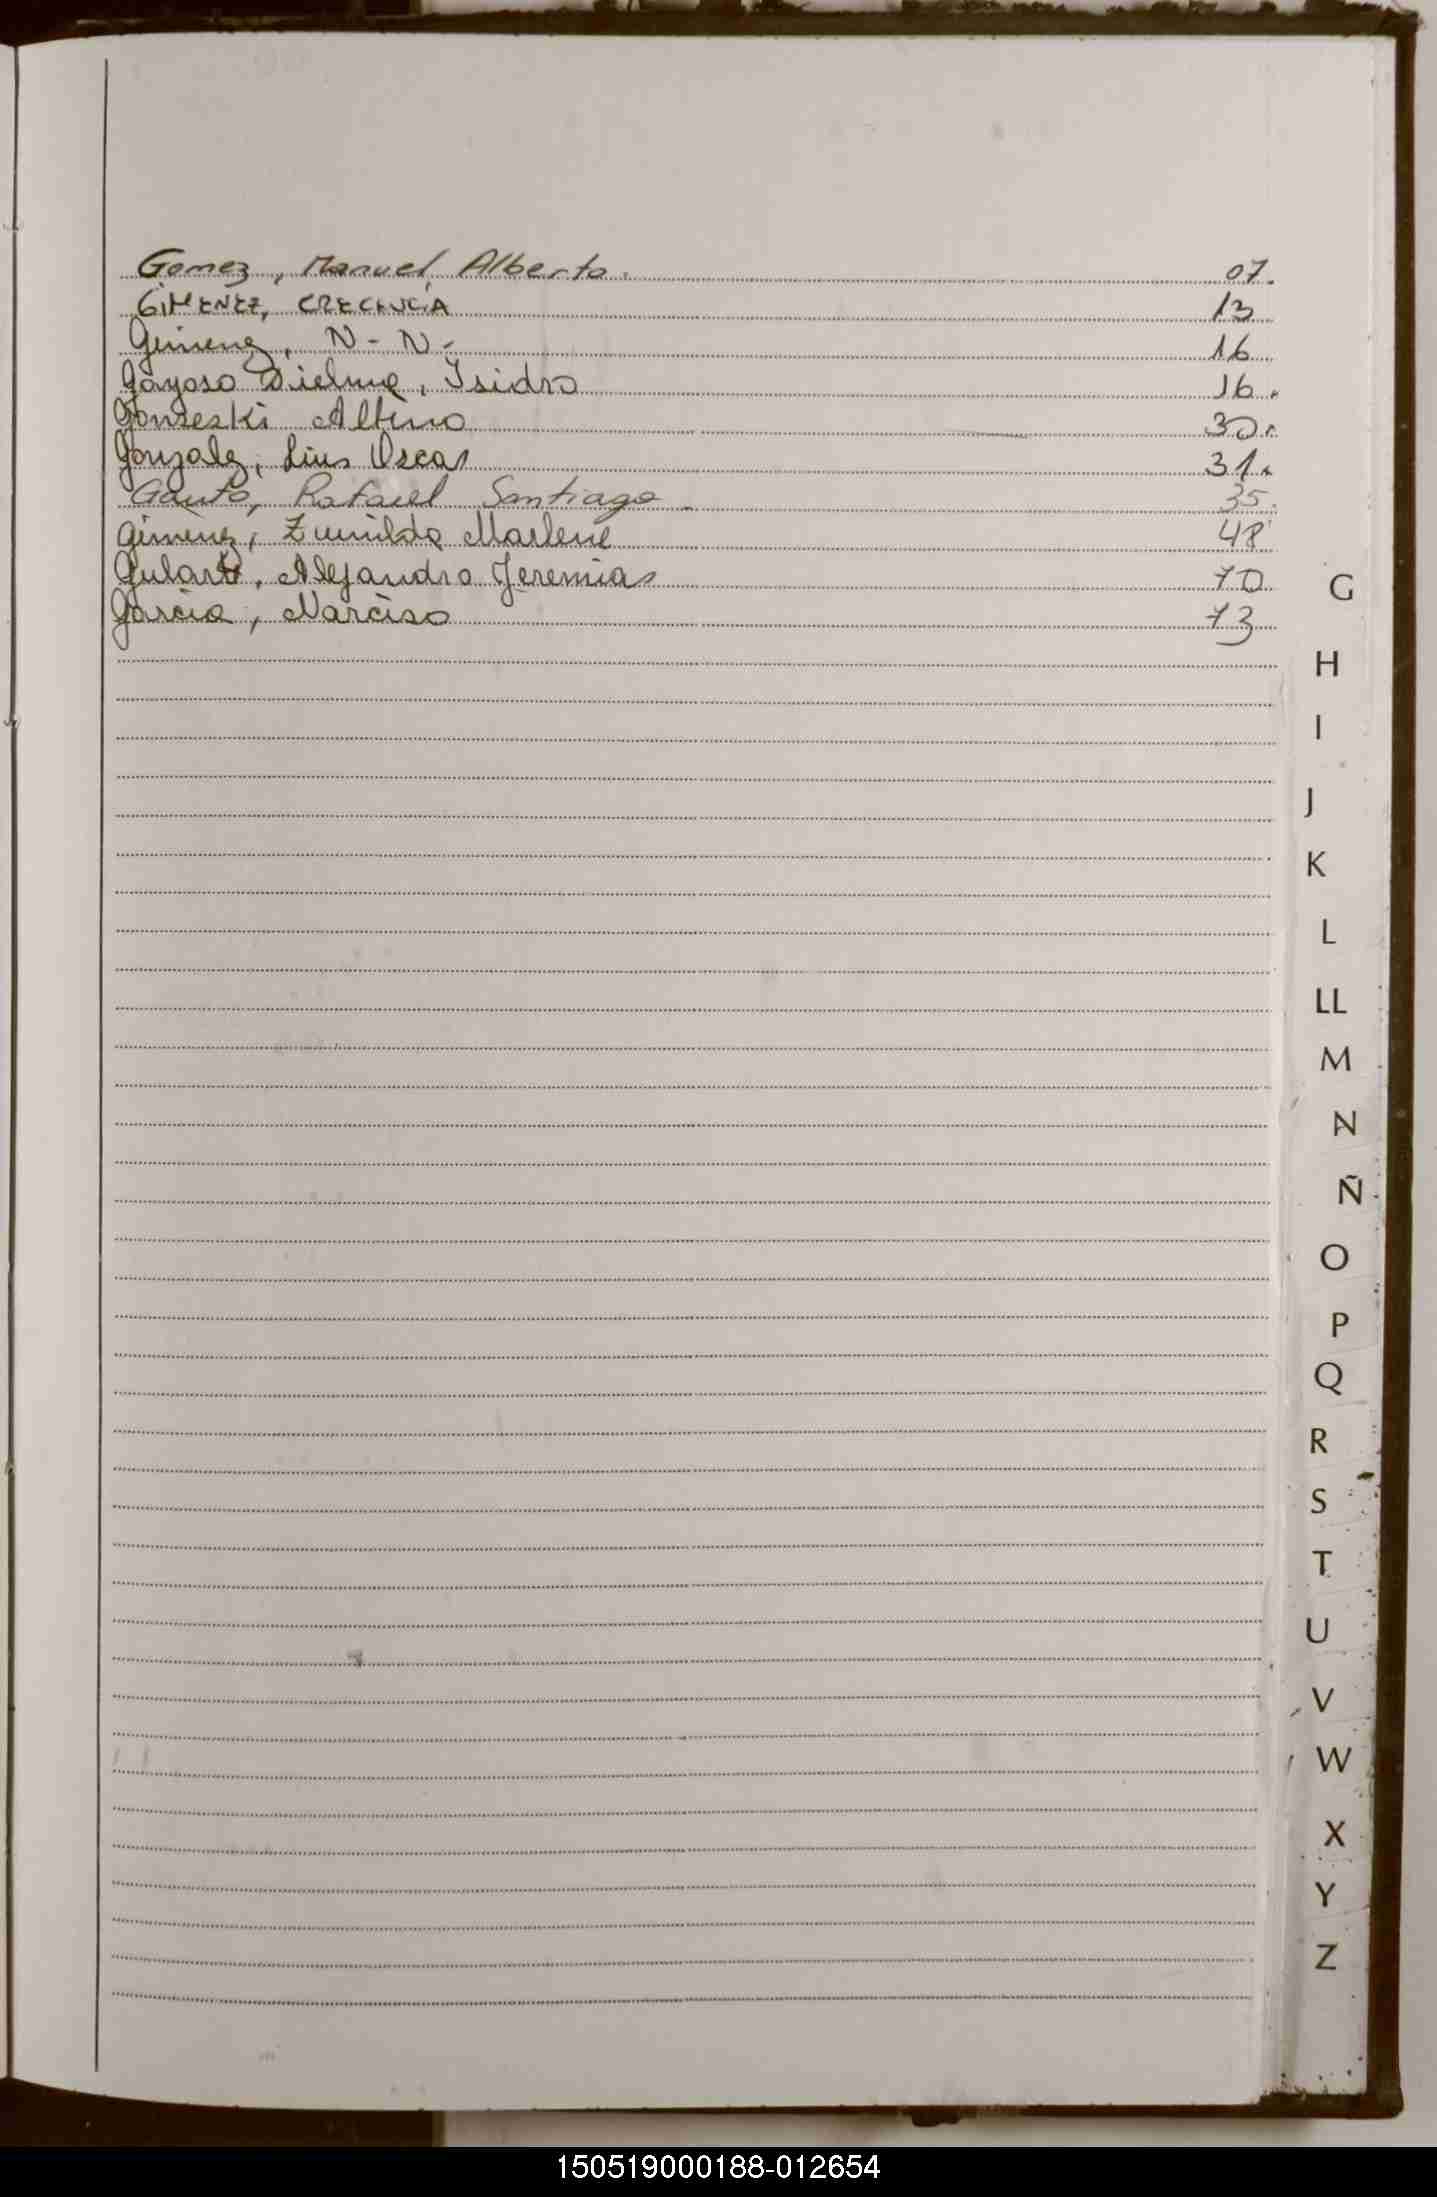 Gomez, Manuel Alberto. 07.
GIMENEZ, CRECENCIA 13
Gimenez, N-N- 16
Gayoso Dielma, Isidro 16.
Gonseski Albino 30.
Gonzalez, Luis Oscar 31.
Gauto, Rafael Santiago 35.
Gimenez, Zunilda Marlene 48
Gularte, Alejandro Jeremias 70
Garcia, Narciso 73
G
H
I
J
K
L
LL
M
N
Ñ
O
P
Q
R
S
T
U
V
W
X
Y
Z
150519000188-012654